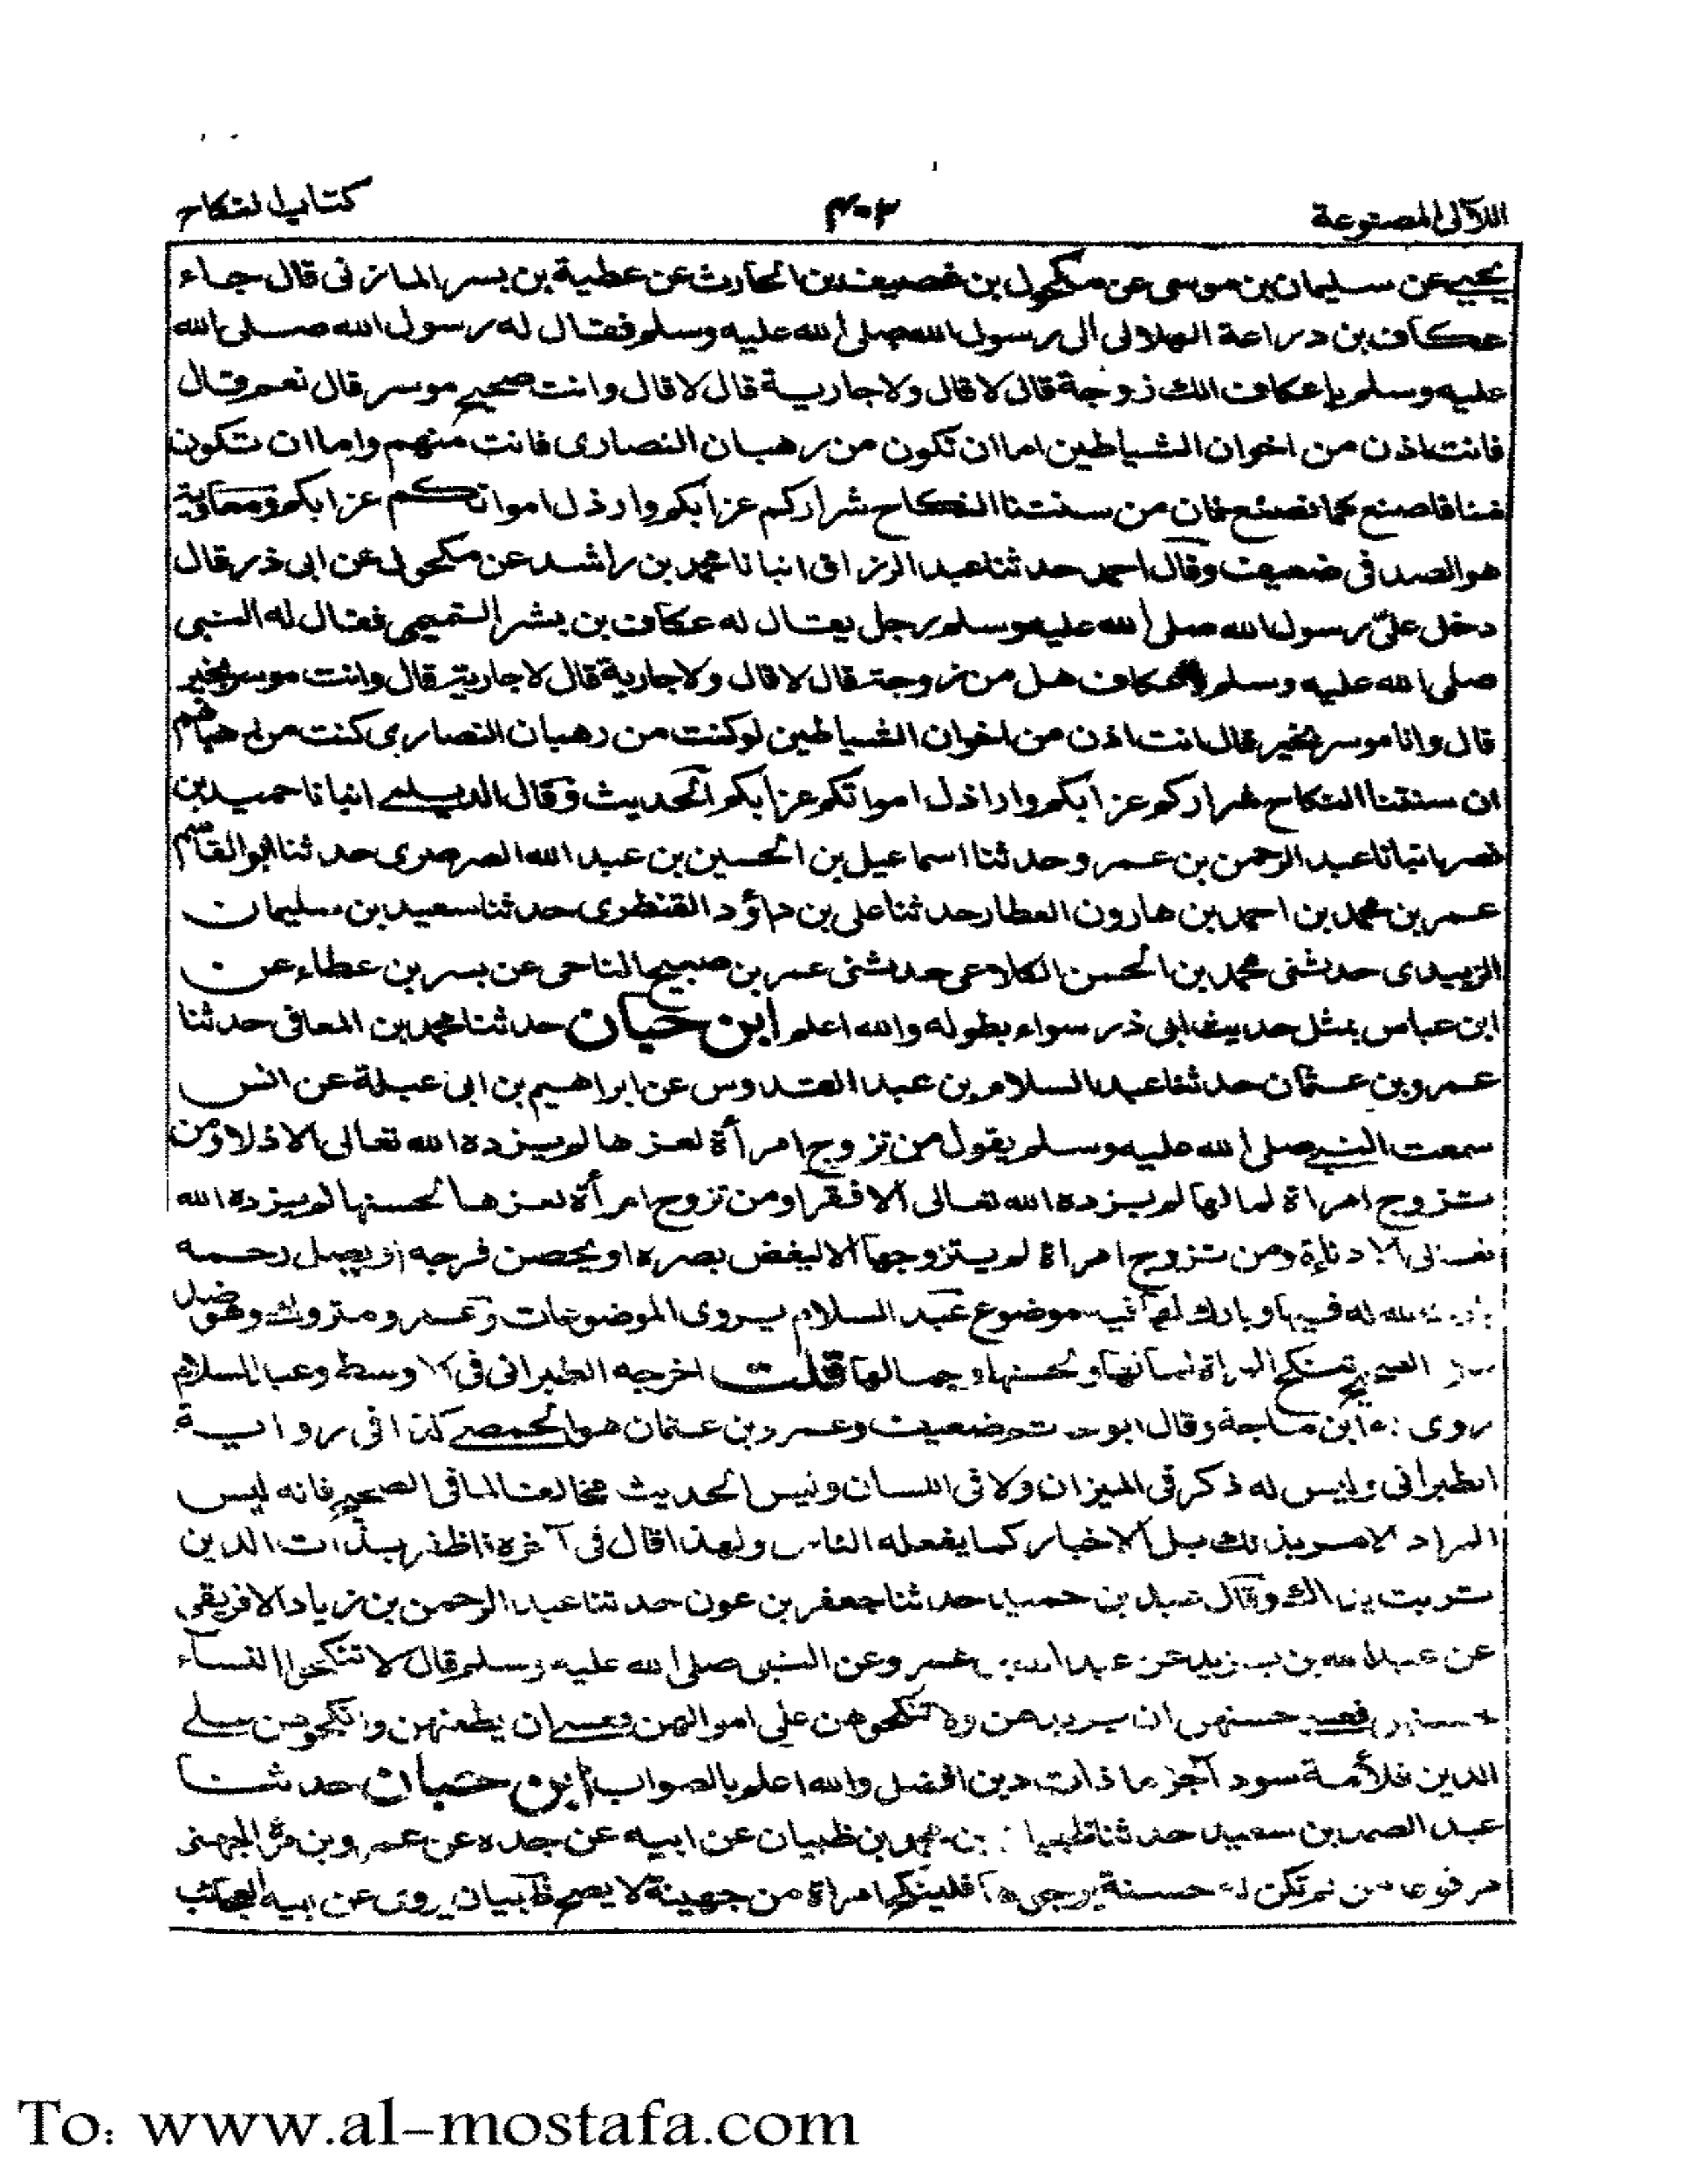 اللآلى المصنوعة
٣٠٣
كتاب النكاح
يحيى عن سليمان بن موسى عن مكحول بن غصيف بن الحارث عن عطية بن بسر المازنى قال جاء
عكاف بن دراعة الهلالى الى رسول الله صلى الله عليه وسلم فقال له رسول الله صلى الله
عليه وسلم يا عكاف الك زوجة قال لا قال ولا جارية قال لا قال وانت صحيح موسر قال نعم قال
فانت اذن من اخوان الشياطين اما ان تكون من رهبان النصارى فانت منهم واما ان تكون
منا فاصنع كما نصنع فان من سنتنا النكاح شراركم عزابكم وارذل امواتكم عزابكم ومعاوية
هو الصدفى ضعيف وقال احمد حدثنا عبد الرزاق انبانا محمد بن راشد عن مكحول عن ابى ذر قال
دخل على رسول الله صلى الله عليه وسلم رجل يقال له عكاف بن بشر التميمى فقال له النبى
صلى الله عليه وسلم يا عكاف هل من زوجة قال لا قال ولا جارية قال لا جارية قال وانت موسر بخير
قال وانا موسر بخير قال انت اذن من اخوان الشياطين لو كنت من رهبان النصارى كنت من رهبانهم
ان سنتنا النكاح شراركم عزابكم واراذل امواتكم عزابكم الحديث وقال الديلمى انبانا حميد بن
نصر انبانا عبد الرحمن بن عمر وحدثنا اسماعيل بن الحسين بن عبد الله الصرصرى حدثنا ابو القاسم
عمر بن محمد بن احمد بن هارون العطار حدثنا على بن داؤد القنطرى حدثنا سعيد بن سليمان
الزبيدى حدثنى محمد بن الحسن الكلاعى حدثنى عمر بن صبيح التاحى عن بسر بن عطاء عن
ابن عباس بمثل حديث ابى ذر سواء بطوله والله اعلم ابن حبان حدثنا محمد بن المعافى حدثنا
عمرو بن عثمان حدثنا عبد السلام بن عبد القدوس عن ابراهيم بن ابى عبلة عن انس
سمعت النبى صلى الله عليه وسلم يقول من تزوج امرأة لعزها لم يزده الله تعالى الا ذلا ومن
تزوج امراة لمالها لم يزده الله تعالى الا فقرا ومن تزوج امرأة لعزها لحسنها لم يزده الله
تعالى الا دناءة ومن تزوج امراة لم يتزوجها الا ليغض بصره او يحصن فرجه او يصل رحمه
بارك الله له فيها وبارك لها فيه موضوع عبد السلام يروى الموضوعات وعمرو متروك وهو ضد
الصحيح تنكح المراة لمالها ولحسنها وجمالها قلت اخرجه الطبرانى فى الاوسط وعبد السلام
روى له ابن ماجة وقال ابو حاتم ضعيف وعمرو بن عثمان هو الحمصى كذا فى رواية
الطبرانى وليس له ذكر فى الميزان ولا فى اللسان وليس الحديث مخالفا لما فى الصحيح فانه ليس
المراد الامر بذلك بل الاخبار كما يفعله الناس ولهذا قال فى آخره فاظفر بذات الدين
تربت يداك وقال عبد بن حميد حدثنا جعفر بن عون حدثنا عبد الرحمن بن زياد الافريقى
عن عبد الله بن يزيد عن عبد الله بن عمرو عن النبى صلى الله عليه وسلم قال لا تنكحوا النساء
لحسنهن فعسى حسنهن ان يرديهن ولا تنكحوهن على اموالهن فعسى ان يطغيهن وانكحوهن على
الدين فلأمة سوداء خرماء ذات دين افضل والله اعلم بالصواب ابن حبان حدثنا
عبد الصمد بن سعيد حدثنا ظبيان بن محمد بن ظبيان عن ابيه عن جده عن عمرو بن مرة الجهنى
مرفوعا من لم تكن له حسنة يرجوها فلينكح امراة من جهينة لا يصح ظبيان يروى عن ابيه العجائب
To: www.al-mostafa.com